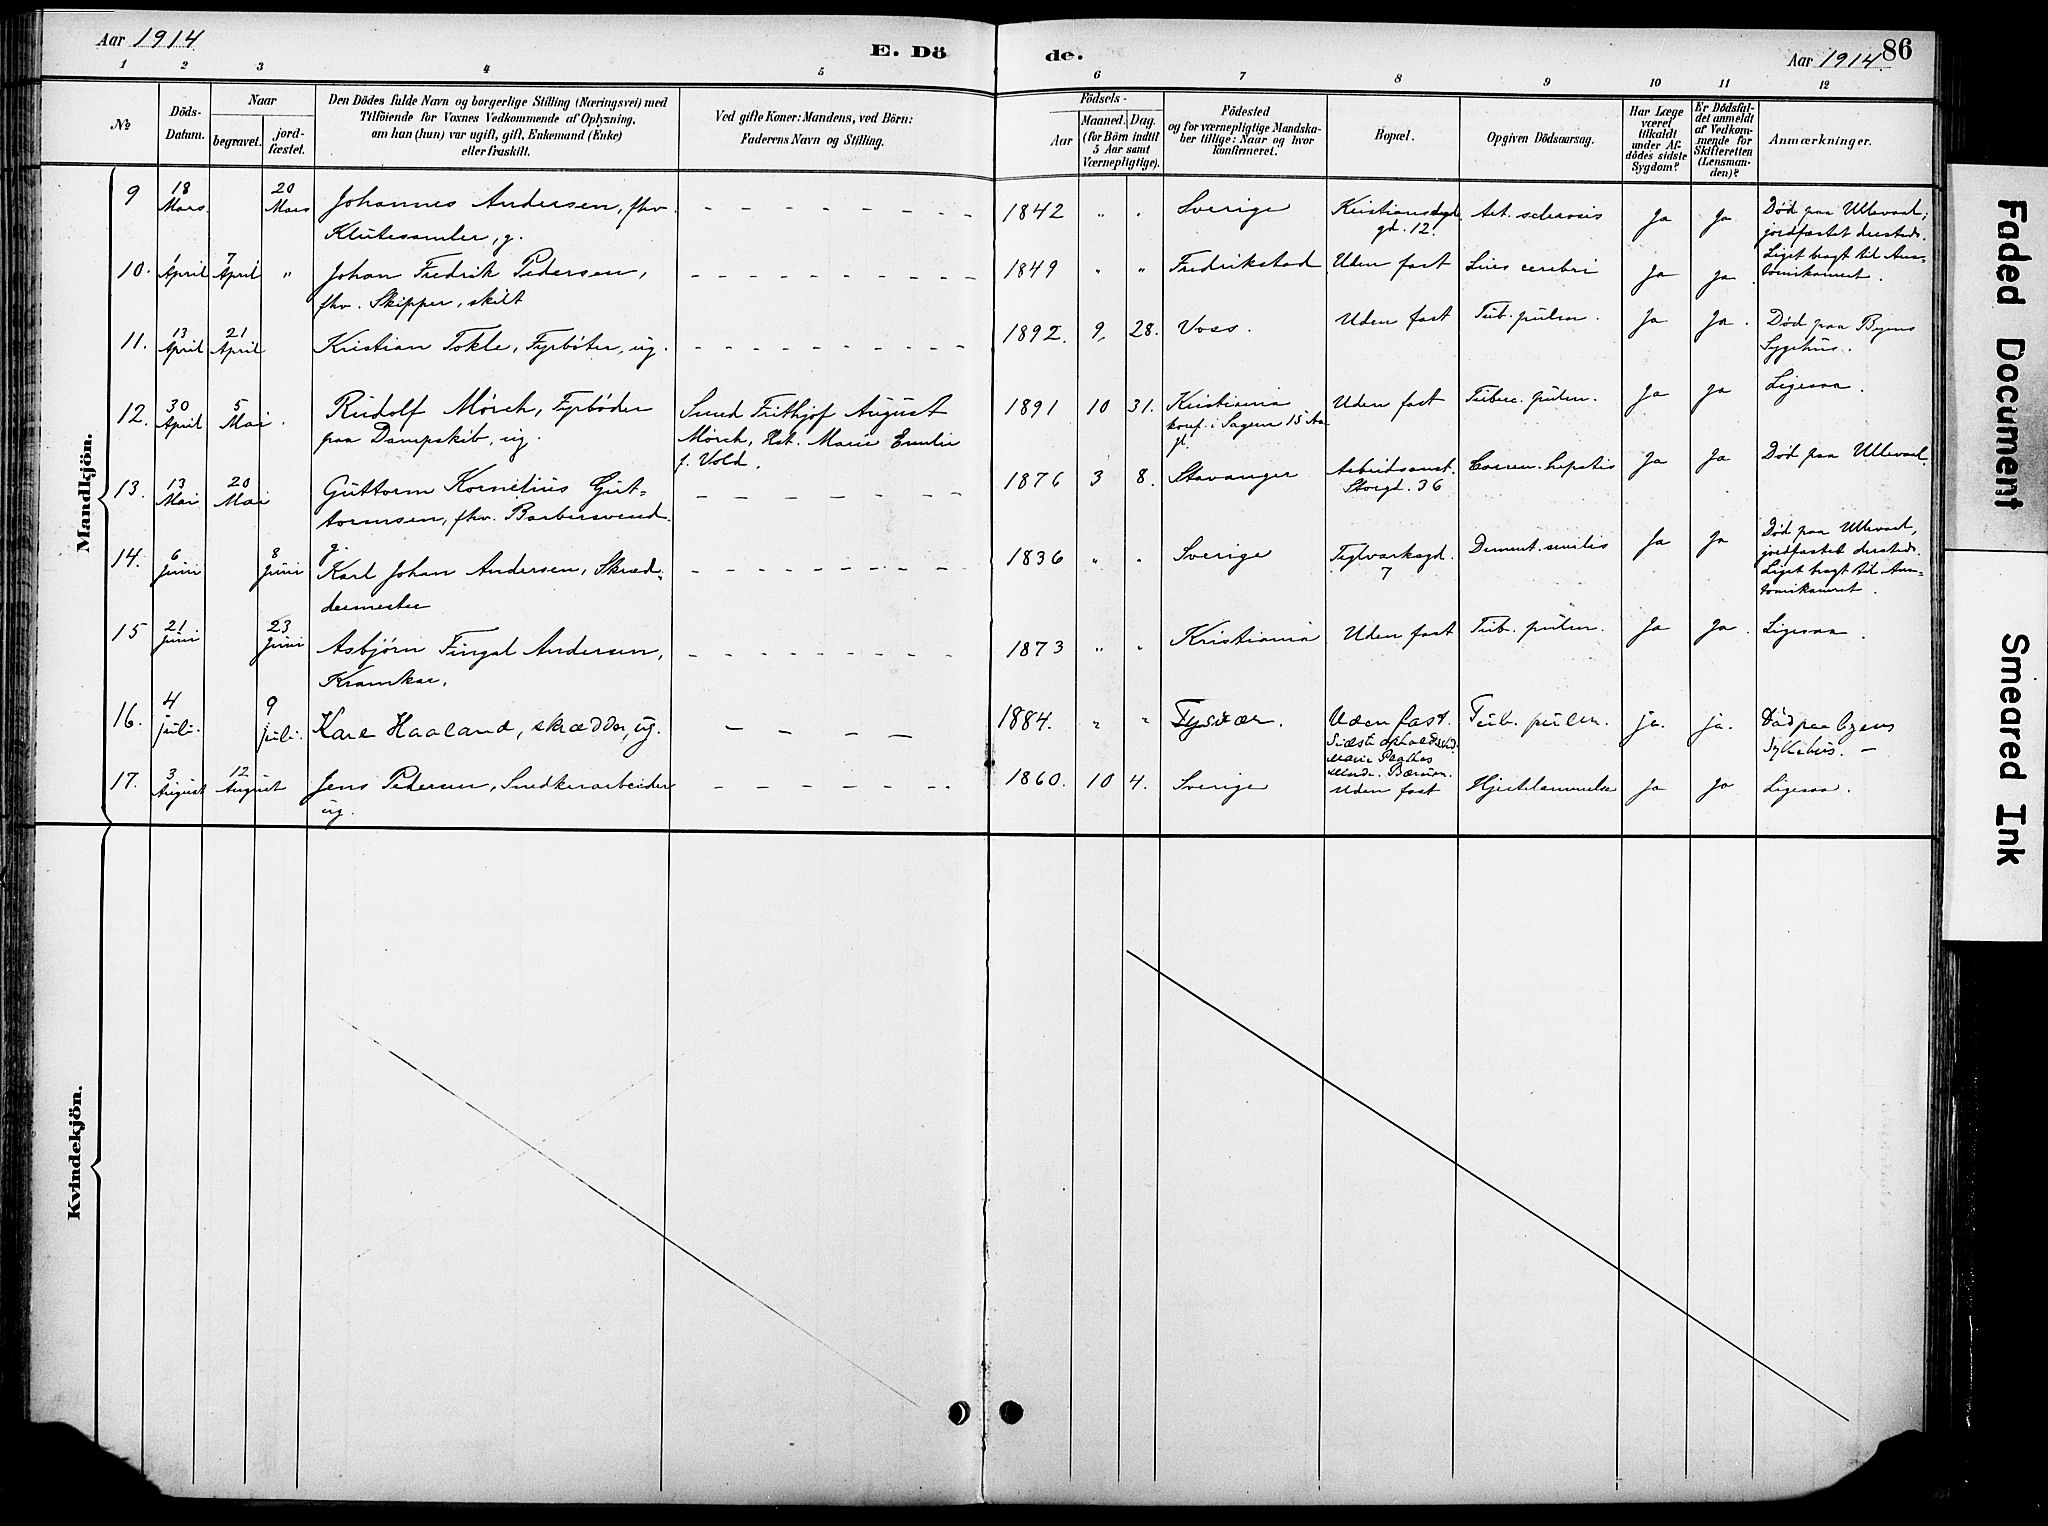 Aar 1914
E. Dö
de.
Aar 1914.
86
1 2 3 4 5 6 7 8 9 10 11 12
№
Döds-
Datum.
Naar
begravet.
jord-
fæstet.
Den Dödes fulde Navn og borgerlige Stilling (Næringsvei) med
Tilföiende for Voxnes Vedkommende af Oplysning,
om han (hun) var ugift, gift, Enkemand (Enke)
eller fraskilt.
Ved gifte Koner: Mandens, ved Börn:
Faderens Navn og Stilling.
Födsels-
Aar
Maaned. Dag.
(for Börn indtil
5 Aar samt
Værnepligtige).
Födested
og for værnepligtige Mandska-
ber tillige: Naar og hvor
konfirmeret.
Bopæl.
Opgiven Dödsaarsag.
Har Læge
været
tilkaldt
under Af-
dödes sidste
Sygdom?
Er Dödsfal-
det anmeldt
af Vedkom-
mende for
Skifteretten
(Lensman-
den)?
Anmærkninger.
Mandkjön.
9
18
Mars.
20
Mars
Johannes Andersen, fhv.
Klutesamler, g.
1842 " "
Sverige
Kristiansbygd
gd. 12.
Art. sclerosis
Ja
Ja
Død paa Ullevaal,
jordfæstet dersteds.
Liget bragt til Ana-
tomikamret.
10.
1
April
7
April
"
Johan Fredrik Pedersen,
fhv. Skipper, skilt
1849 " "
Fredrikstad
Uden fast
Lues cerebri
Ja
Ja
11.
13
April
21
April
Kristian Tokle, Fyrbøter, ug.
1892. 9, 28.
Voss.
Uden fast
Tub. pulm.
Ja
Ja.
Død paa Byens
Sygehus.
12.
30
April
5
Mai.
Rudolf Mørch, Fyrbøder
paa Dampskib, ug.
Smed Frithjof August
Mørch, Hst. Marie Emilie
f. Vold.
1891 10 31.
Kristiania
konf. i Sagene 15 Aar
gl.
Uden fast
Tuberc. pulm.
Ja
Ja
Ligesaa.
13.
13
Mai
20
Mai
Guttorm Kornelius Gut-
tormsen, fhv. Barbersvend.
g.
1876 3 8.
Stavanger
Arbeidsanst.
Storgd. 36
Carcin. hepatis
Ja
Ja
Død paa Ullevaal.
14.
6
Juni
8
Juni
Karl Johan Andersen, Skræd-
dermester
1836 " "
Sverige
Teglverksgd.
7
Dement. senilis
Ja
Ja
Død paa Ullevaal,
jordfæstet dersteds.
Liget bragt til Ana-
tomikamret.
15
21
Juni
23
Juni
Asbjørn Fingal Andersen,
Kramkar.
1873 " "
Kristiania
Uden fast
Tub. pulm.
Ja
Ja.
Ligesaa.
16.
4
juli.
9
juli.
Karl Haaland, skrædder, ug.
1884. " "
Tysvær.
Uden fast.
Sidste opholdssted
Marie Plathes
Minde. Bærum.
Tub. pulm.
ja.
ja.
Død paa byens
sykehus.
17.
3
August
12
August
Jens Pedersen, Snedkerarbeider
ug.
1860. 10 4.
Sverige
Uden fast
Hjertelammelse
Ja
Ja
Ligesaa.
Kvindekjön.
Faded Document
Smeared Ink